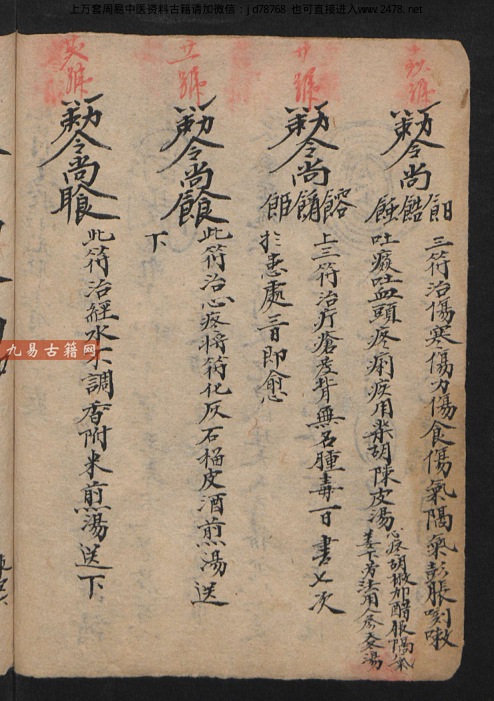 上万套周易中医资料古籍请加微信：jd78768 也可直接进入www.2478.net
號
勅令尚
三符治傷寒傷力傷食傷氣隔氣彭脹咳嗽
吐痰吐血頭疼痢疾用柴胡陳皮湯
心疼胡椒加醋服隔氣
廿號
勅令尚
上三符治疔瘡發背無名腫毒一日書七次
於患處三日即愈
廿一號
勅令尚
此符治心疼將符化灰石榴皮酒煎湯送
下
號
勅令尚
此符治經水不調香附米煎湯送下
九易古籍网